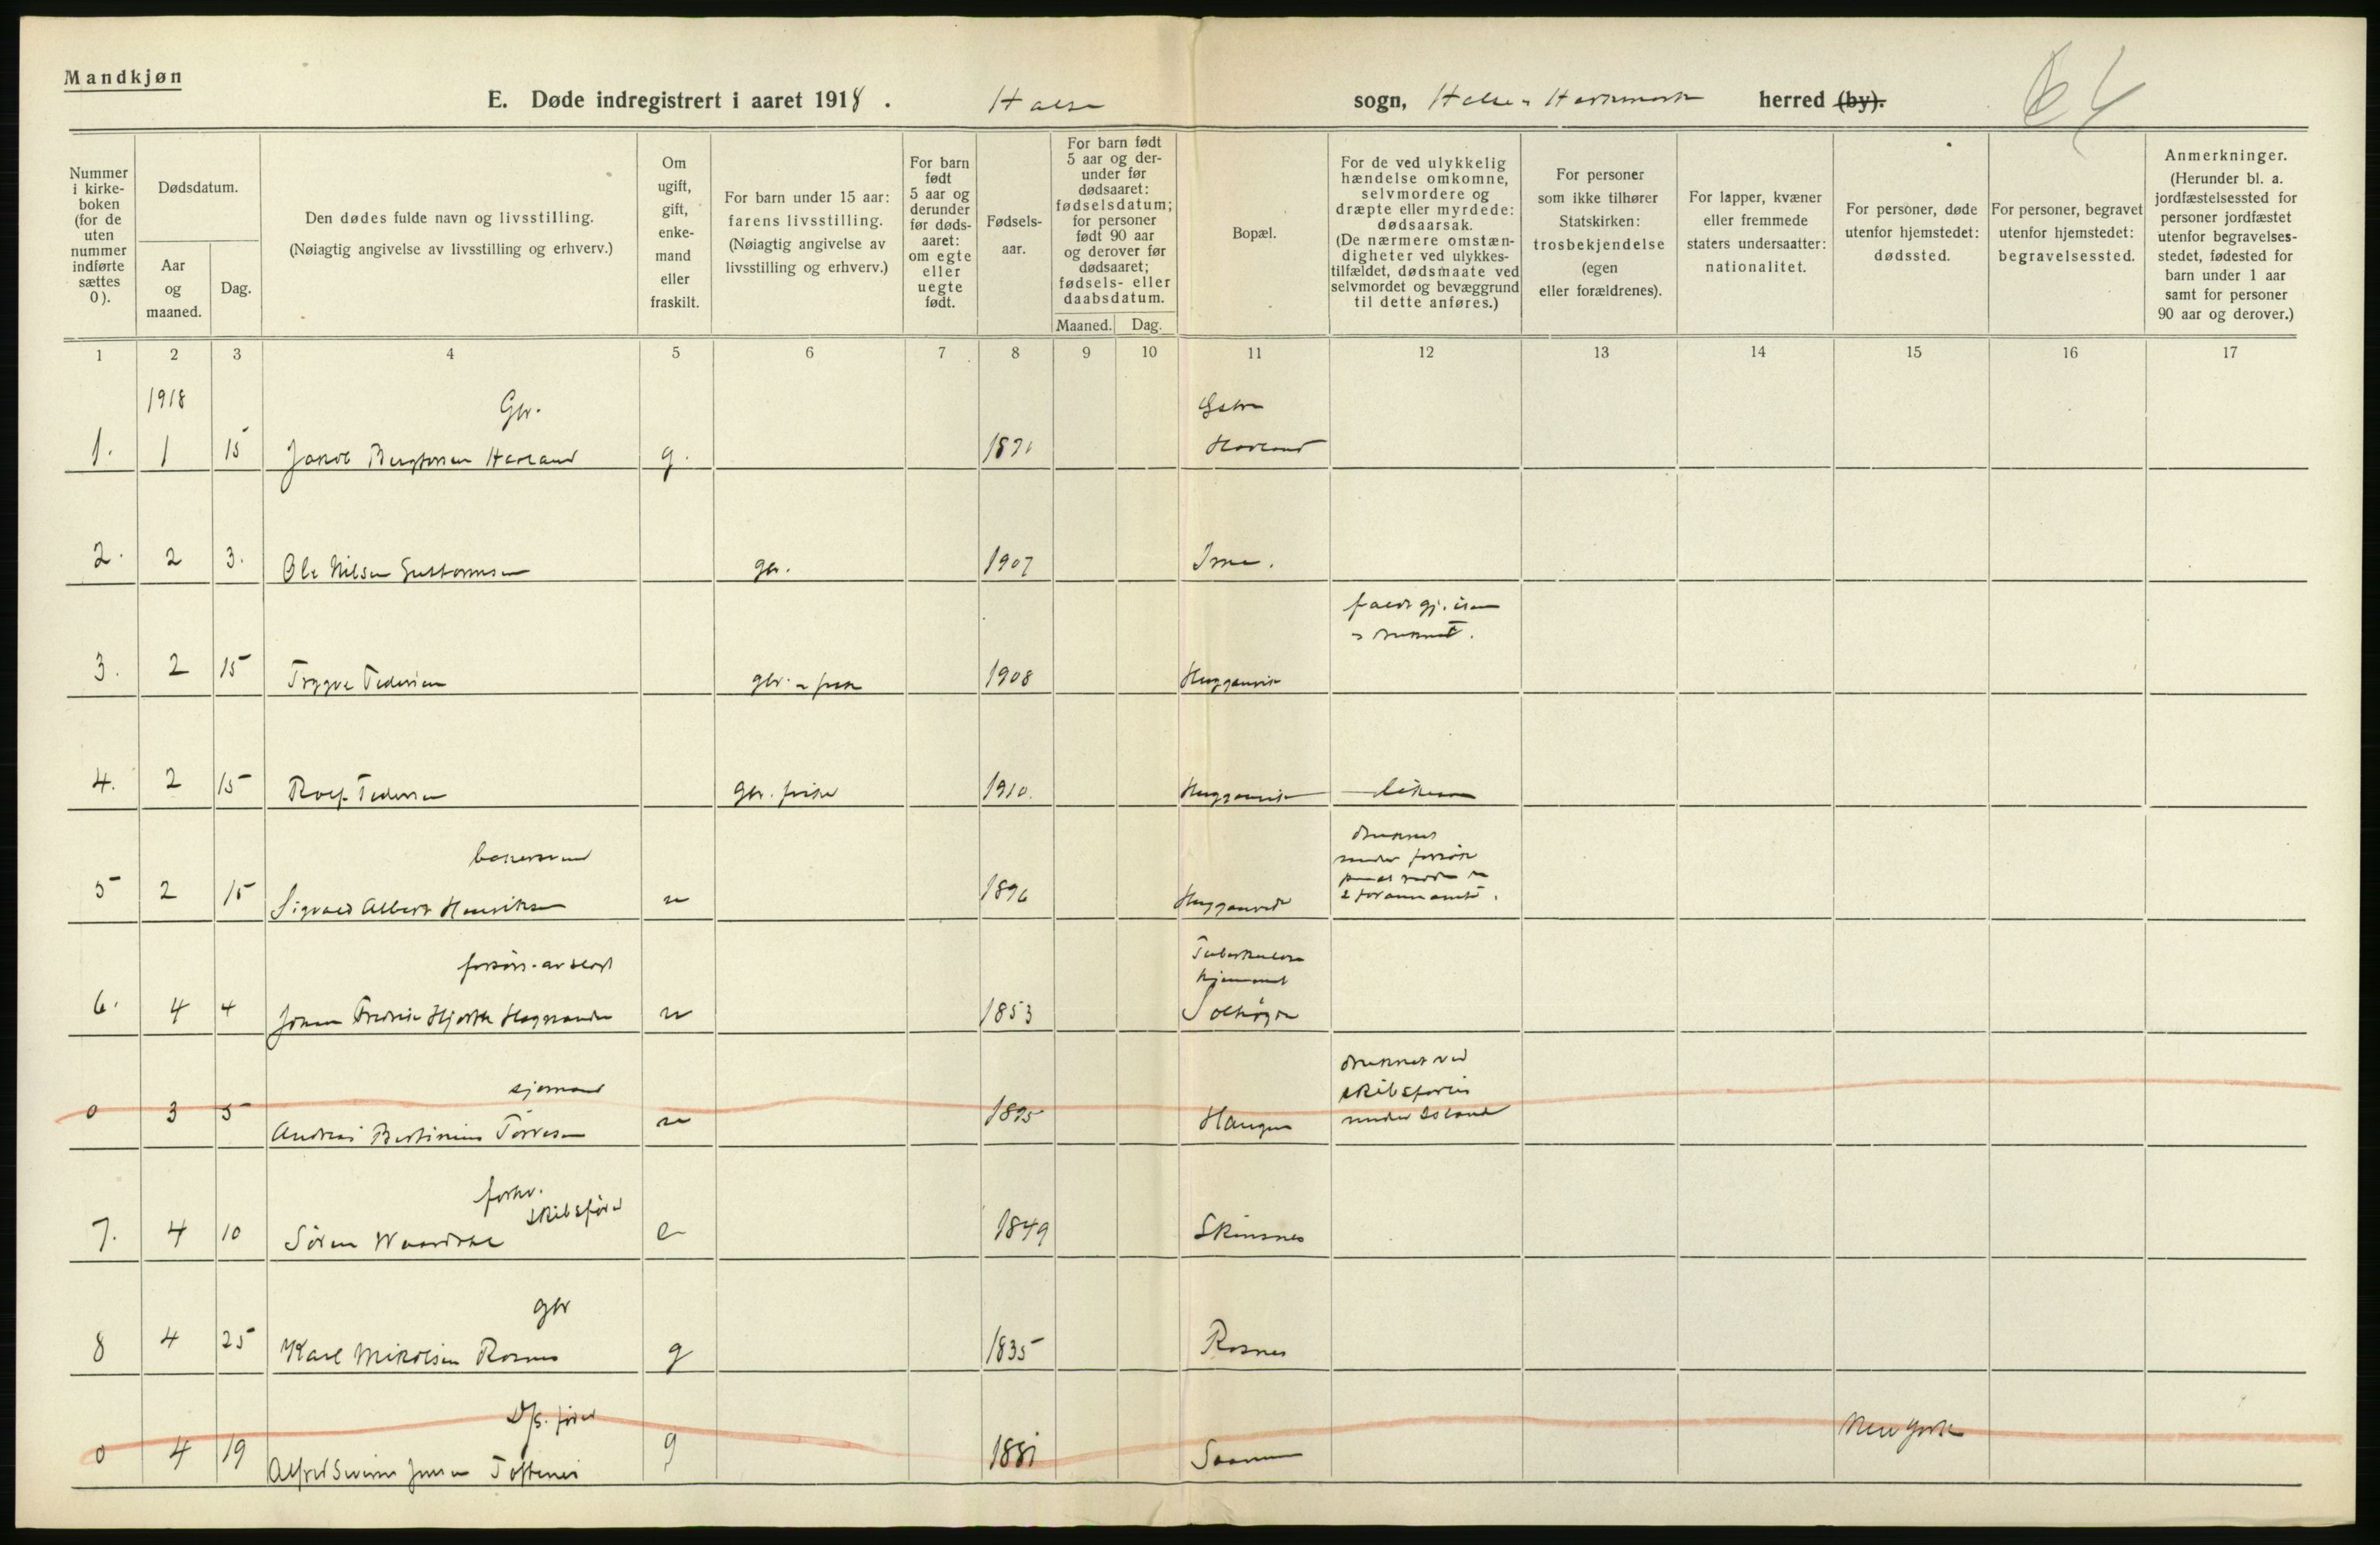 Mandkjøn
E. Døde indregistrert i aaret 1918. Halse sogn, Halse & Harkmark herred (by).
64
Nummer i kirkeboken (for de uten nummer indførte sættes 0).
Dødsdatum.
Aar og maaned.
Dag.
Den dødes fulde navn og livsstilling.
(Nøiagtig angivelse av livsstilling og erhverv.)
Om ugift, gift, enkemand eller fraskilt.
For barn under 15 aar: farens livsstilling. (Nøiagtig angivelse av livsstilling og erhverv.)
For barn født 5 aar og derunder før dødsaaret: om egte eller uegte født.
Fødselsaar.
For barn født 5 aar og derunder før dødsaaret: fødselsdatum; for personer født 90 aar og derover før dødsaaret; fødsels- eller daabsdatum.
Maaned.
Dag.
Bopæl.
For de ved ulykkelig hændelse omkomne, selvmordere og dræpte eller myrdede: dødsaarsak. (De nærmere omstændigheter ved ulykkestilfældet, dødsmaate ved selvmordet og bevæggrund til dette anføres.)
For personer som ikke tilhører Statskirken: trosbekjendelse (egen eller forældrenes).
For lapper, kvæner eller fremmede staters undersaatter: nationalitet.
For personer, døde utenfor hjemstedet: dødssted.
For personer, begravet utenfor hjemstedet: begravelsessted.
Anmerkninger. (Herunder bl. a. jordfæstelsessted for personer jordfæstet utenfor begravelsesstedet, fødested for barn under 1 aar samt for personer 90 aar og derover.)
1 2 3 4 5 6 7 8 9 10 11 12 13 14 15 16 17
1918
Gbr.
1. 1 15 Jakob Bergtorsen Haaland g. 1871
2. 2 3. Ole Nilsen Guttormsen gbr. 1907 Ime.
3. 2 15 Trygve Pedersen gbr. & fisk 1908 Huggenvik
4. 2 15 Rolf Pedersen gbr. fisker 1910. Huggenvik
5 2 15 Sigvald Albert Henriksen u 1896 Huggenvik
druknet
under forsøk
paa at redde de
2 forannævnte.
Tuberkulose
hjemmet
6. 4 4 Johan Fredrik Hjorth u 1853 Solhøgda
sjømand
druknet ved
skibsforlis
under Island
0 3 5 Andreas Bertinius Tørresen u 1895 Haugen
forhv.
skibsfører
7. 4 10 Søren e 1849 Skinsnes
gbr
8 4 25 Karl Mikalsen Rosnes g 1835 Rosnes
D/s. fører
0 4 19 Alfred Severin Jensen Toftenes g 1881 Saanum New York